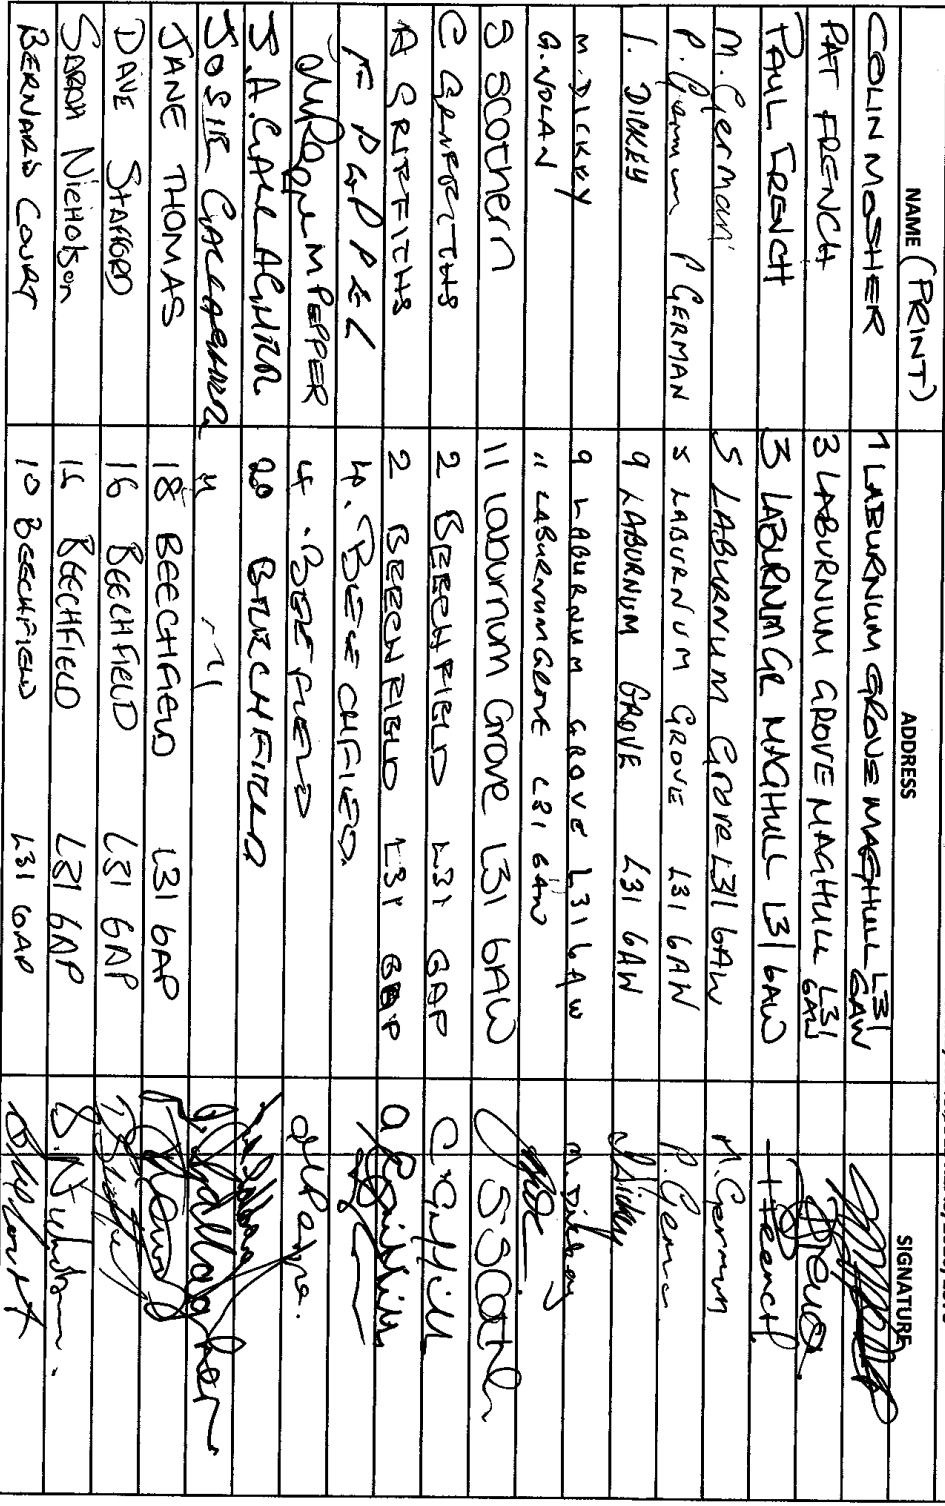 NAME (PRINT) ADDRESS SIGNATURE
COLIN MOSHER 1 LABURNUM GROVE MAGHULL L31 6AW
PAT FRENCH 3 LABURNUM GROVE MAGHULL L31 6AW
PAUL FRENCH 3 LABURNUM GR MAGHULL L31 6AW
M. German 5 LABURNUM Grove L31 6AW M. German
P. German P GERMAN 5 LABURNUM GROVE L31 6AW P. German
I. DICKEY 9 LABURNUM GROVE L31 6AW I Dickey
M. DICKEY 9 LABURNUM GROVE L31 6AW M. Dickey
G. NOLAN 11 LABURNUM GROVE L31 6AW
S SCOTHERN 11 Laburnum Grove L31 6AW S Scothern
C GRIFFITHS 2 BEECHFIELD L31 6AP C. Griffith
A GRIFFITHS 2 BEECHFIELD L31 6AP A Griffiths
F PEPPER 4. BEECHFIELD.
PEPPER 4. BEEFIELD
J. A. GALLAGHER 20 BIRCHFIELD
JOSIE GALLAGHER " " Gallagher
JANE THOMAS 18 BEECHFIELD L31 6AP
DAVE STAFFORD 16 BEECHFIELD L31 6AP
SARAH Nicholson 16 BEECHFIELD L31 6AP S. Nicholson.
BERNARD COURT 10 BEECHFIELD L31 6AP